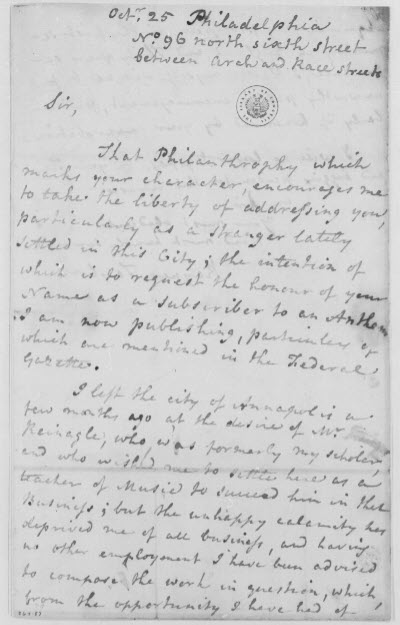 Octr. 25 Philadelphia
No 96 north sixth street
between arch and Race streets
Sir,
That Philanthrophy which
marks your character, encourages me
to take the liberty of addressing you,
particularly as a stranger lately
settled in this City; the intention of
which is to request the honour of your
Name as a subscriber to an Anthem
I am now publishing, particulars of
which are mentioned in the Federal
Gazette.
I left the city of Annapolis a
few months ago at the desire of Mr.
Reinagle, who was formerly my scholar,
and who wish'd me to settle here as a
teacher of Music to succeed him in that
Business; but the unhappy calamity has
deprived me of all business, and having
no other employment I have been advised
to compose the work in question, which,
from the opportunity I have had of